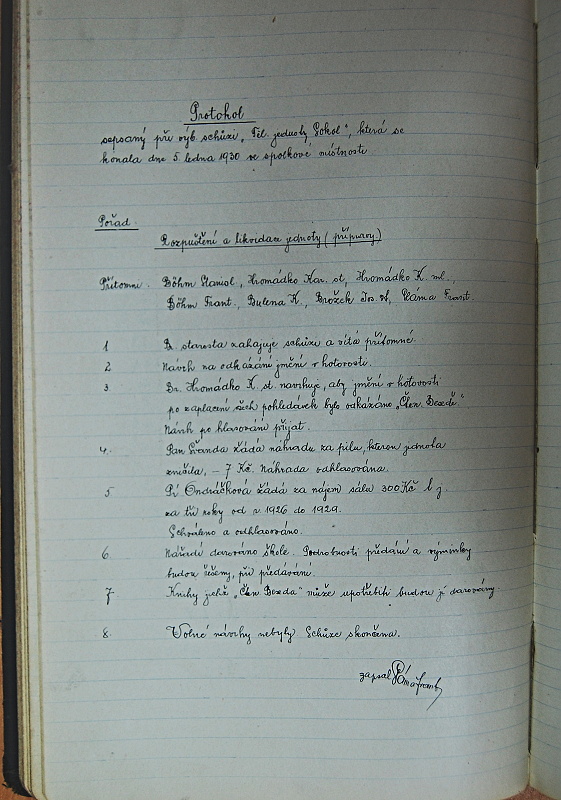 Protokol
sepsaný při výb. schůzi „Těl. jednoty Sokol", která se
konala dne 5 ledna 1930 ve spolkové místnosti
Pořad.
Rozpuštění a likvidace jednoty (přípravy.)
Přítomni. Böhm Stanisl., Hromádko Kar. st., Hromádko K. ml.,
Böhm Frant., Bulena K., Brožek Jos. st., Sláma Frant.
1 Br. starosta zahajuje schůzi a vítá přítomné.
2 Návrh na odkázání jmění v hotovosti.
3 Br. Hromádko K. st. navrhuje, aby jmění v hotovosti
po zaplacení všech pohledávek bylo odkázáno „Čten. Besedě."
Návrh po hlasování přijat.
4. Pan Švanda žádá náhradu za pilu, kterou jednota
zničila, – 7 Kč. Náhrada odhlasována.
5 Pí Ondráčková žádá za nájem sálu 300 Kč t. j.
za tři roky od r 1926 do 1929.
Schváleno a odhlasováno.
6 Nářadí darováno škole. Podrobnosti předání a výminky
budou řešeny, při předávání.
7 Knihy jež „Čten Beseda" může upotřebiti budou jí darovány.
8. Volné návrhy nebyly Schůze skončena.
zapsal Sláma Frant